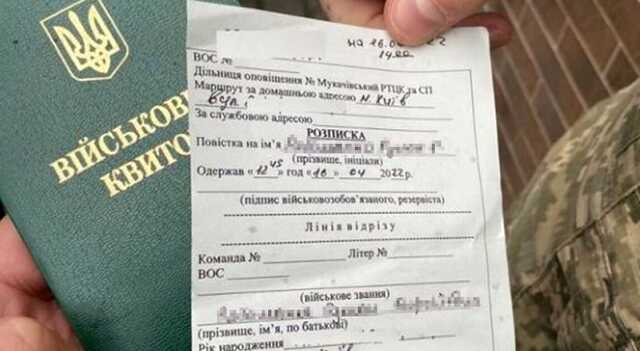 ВІЙСЬКОВ
КВИТО
на 16.0 22
14.00
ВОС №
Дільниця оповіщення № Мукачівський РТЦК та СП
Маршрут за домашньою адресою м. Київ
вул
За службовою адресою
РОЗПИСКА
Повістка на ім'я
(прізвище, ініціали)
Одержав «12 45» год «16» 04 2022 р.
(підпис військовозобов'язаного, резервіста)
Лінія відрізу
Команда № Літер №
ВОС
(військове звання)
(прізвище, ім'я, по батькові)
Рік народження